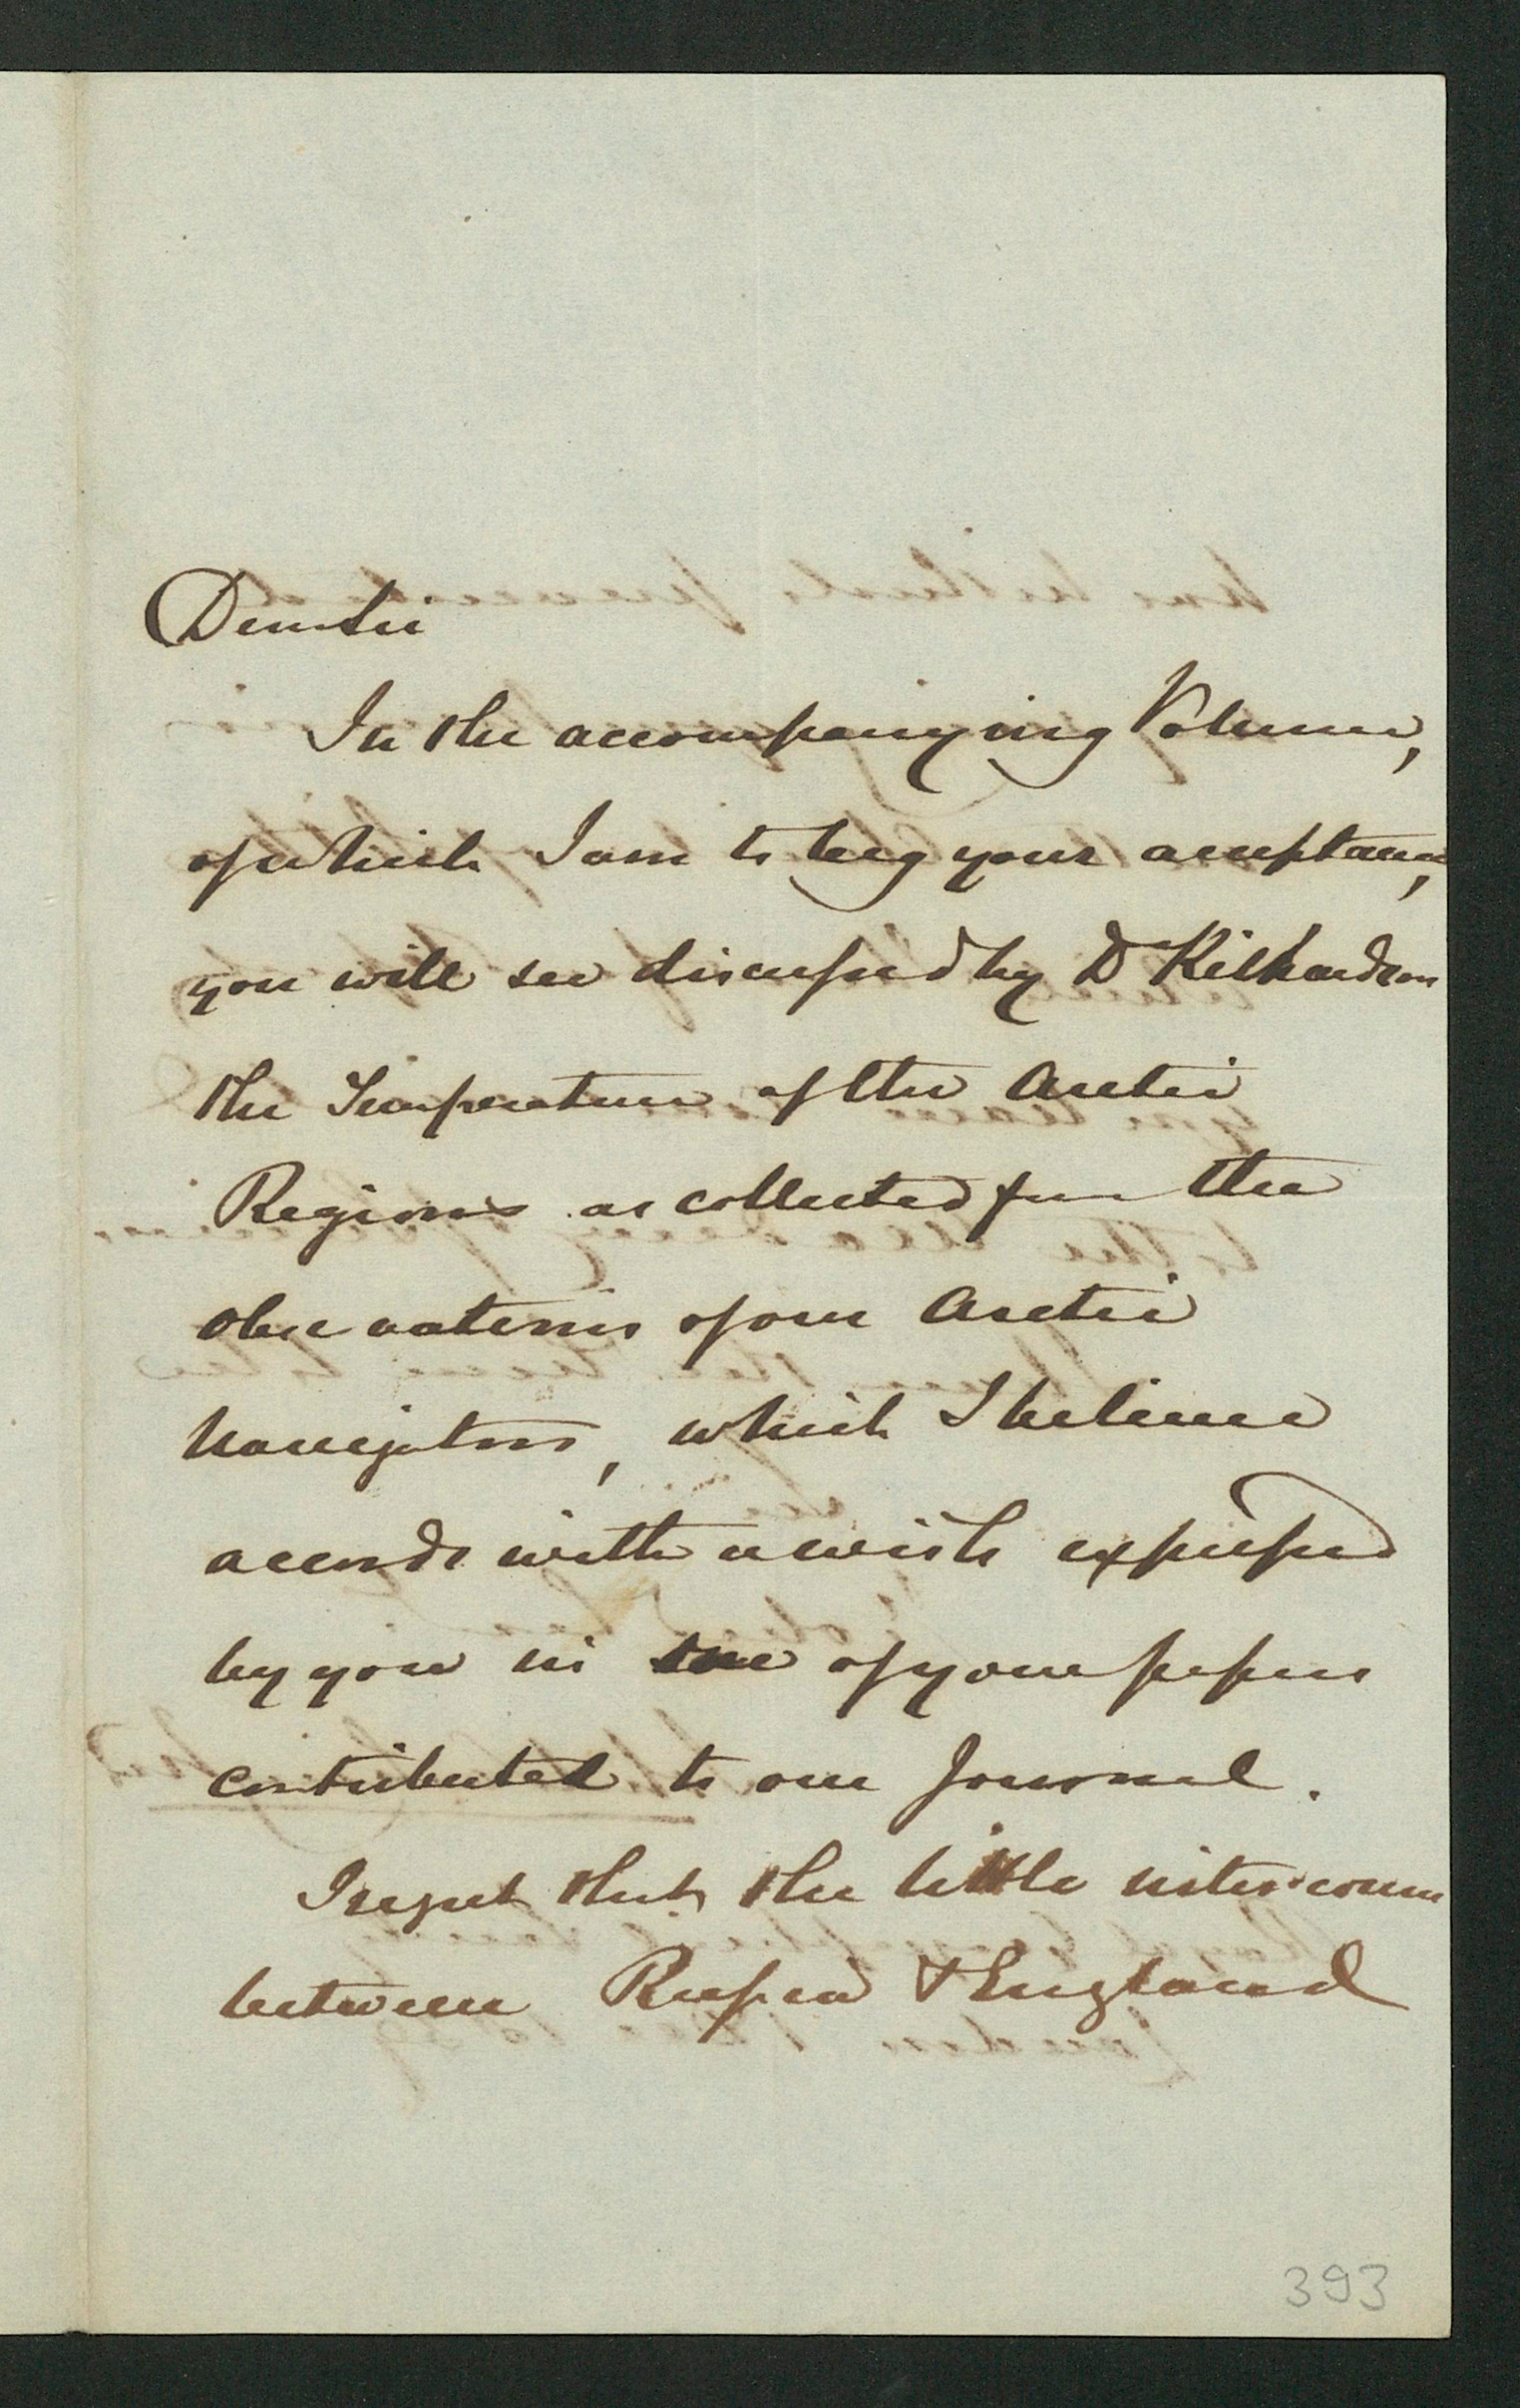 Dear Sir
In the accompanying Volume,
of which I am to beg your acceptance,
you will see discussed by Dr Richardson
the Temperature of the Arctic
Regions as collected from the
observations of our Arctic
Navigators, which I believe
accords with a wish expressed
by you in one of your papers
contributed to our Journal.
I regret that the little intercourse
between Russia & England
393